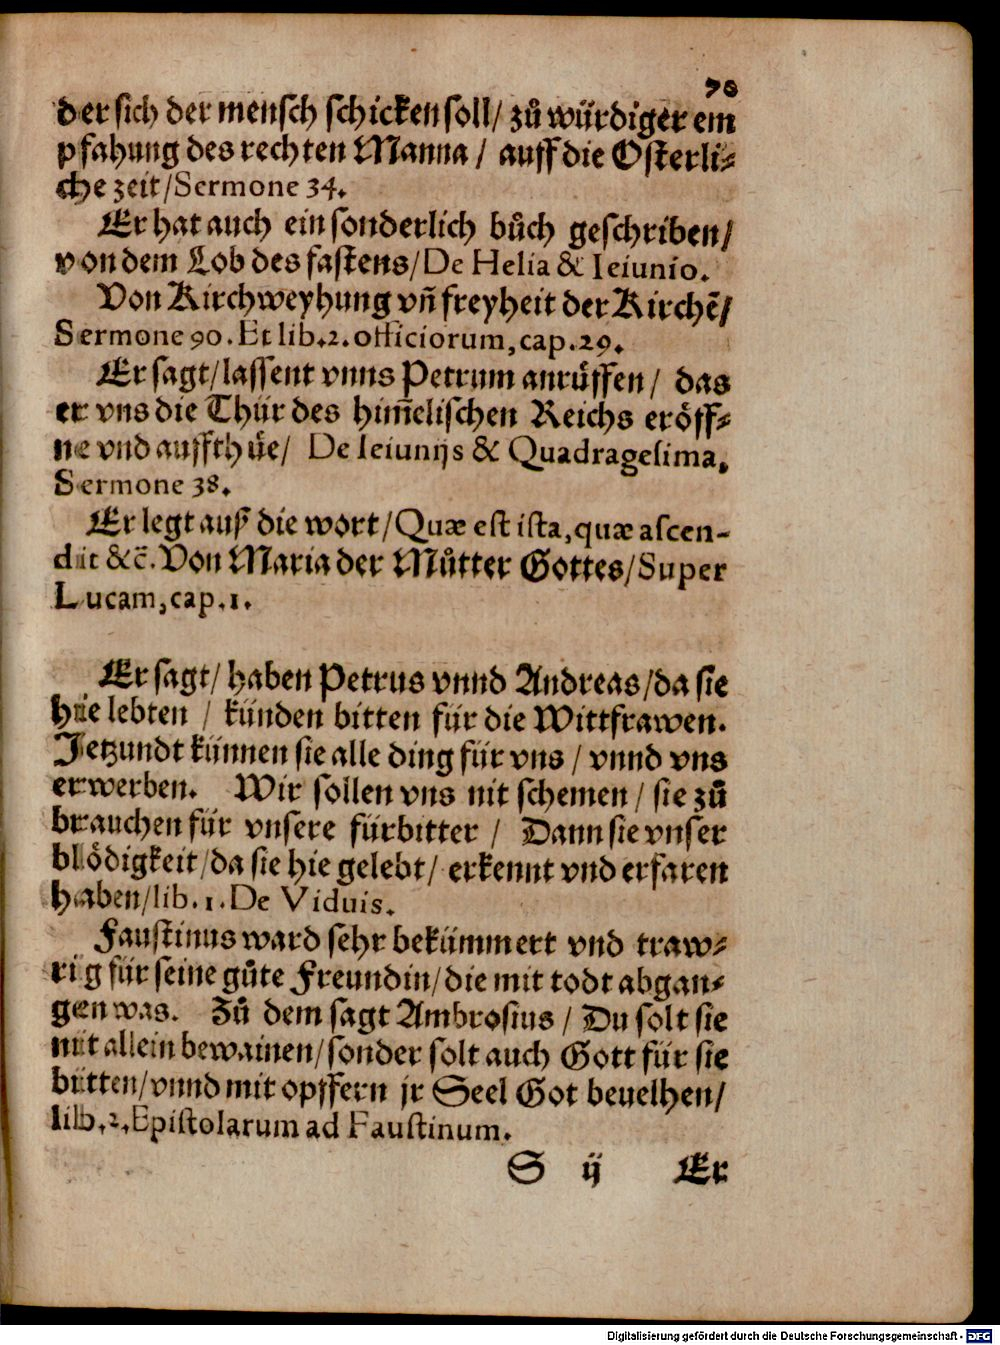 70
der sich der mensch schicken soll/ zů würdiger em
pfahung des rechten Manna / auff die Osterli⸗
che zeit/Sermone 34.
Er hat auch ein sonderlich bůch geschriben/
von dem Lob des fastens/De Helia & Ieiunio.
Von Kirchweyhung vñ freyheit der Kirchẽ/
Sermone 90. Et lib.2. officiorum, cap.29.
Er sagt/lassent vnns Petrum anrůffen/ das
er vns die Thür des him̃elischen Reichs eröff⸗
ne vnd auffthůe/ De Ieiunijs & Quadragesima,
Sermone 38.
Er legt auß die wort/Quæ est ista, quæ ascen-
dit &c̃. Von Maria der Můtter Gottes/Super
Lucam, cap.1.
Er sagt/ haben Petrus vnnd Andreas/da sie
hie lebten / künden bitten für die Wittfrawen.
Jetzundt künnen sie alle ding für vns / vnnd vns
erwerben. Wir sollen vns nit schemen / sie zů
brauchen für vnsere fürbitter / Dann sie vnser
blödigkeit/da sie hie gelebt/ erkennt vnd erfaren
haben/lib.1. De Viduis.
Faustinus ward sehr bekümmert vnd traw⸗
rig für seine gůte Freundin/die mit todt abgan⸗
gen was. Zů dem sagt Ambrosius / Du solt sie
nit allein bewainen/sonder solt auch Gott für sie
bitten/vnnd mit opffern jr Seel Got beuelhen/
lib.2. Epistolarum ad Faustinum.
S ij Er
Digitalisierung gefördert durch die Deutsche Forschungsgemeinschaft - DFG